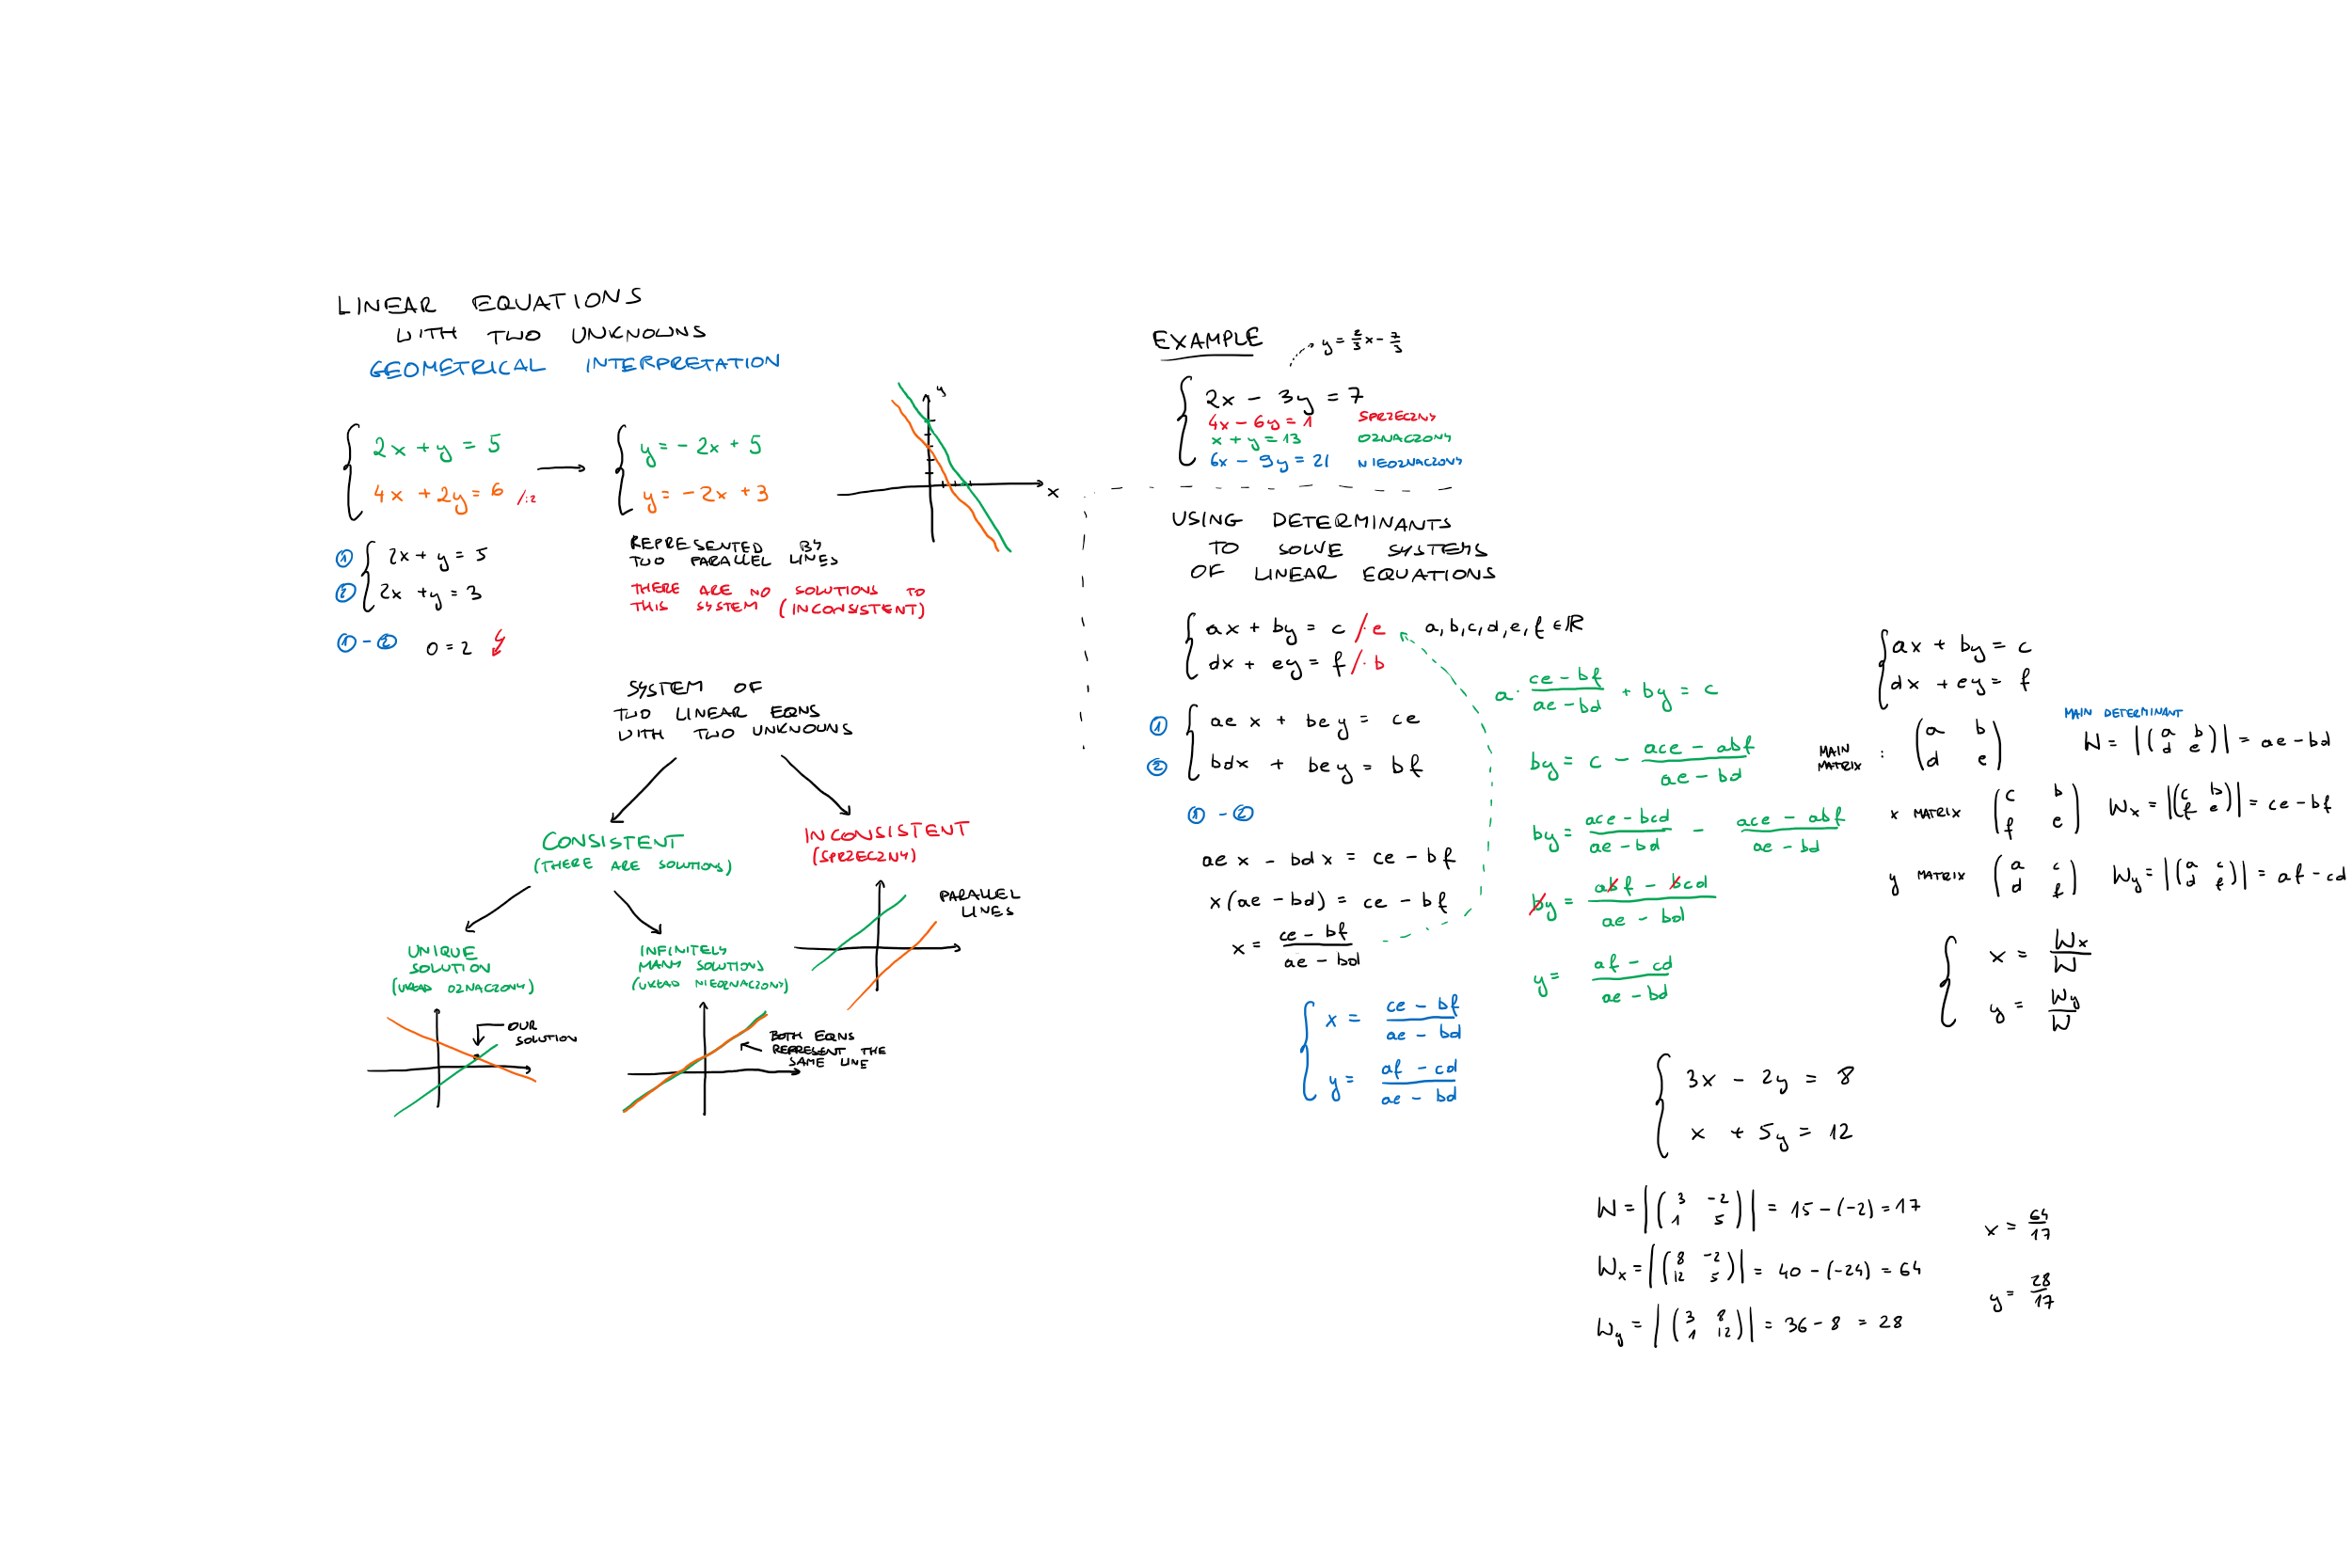 LINEAR EQUATIONS
WITH TWO UNKNOWNS
GEOMETRICAL INTERPRETATION
2x + y = 5
4x + 2y = 6 /:2
y = -2x + 5
y = -2x + 3
y
x
① 2x + y = 5
② 2x + y = 3
① - ② 0 = 2
REPRESENTED BY
TWO PARALLEL LINES
THERE ARE NO SOLUTIONS TO
THIS SYSTEM (INCONSISTENT)
SYSTEM OF
TWO LINEAR EQNS
WITH TWO UNKNOWNS
CONSISTENT
(THERE ARE SOLUTIONS)
INCONSISTENT
(SPRZECZNY)
PARALLEL
LINES
UNIQUE
SOLUTION
(UKŁAD OZNACZONY)
OUR
SOLUTION
INFINITELY
MANY SOLUTIONS
(UKŁAD NIEOZNACZONY)
BOTH EQNS
REPRESENT THE
SAME LINE
EXAMPLE
y = 2/3 x - 7/3
2x - 3y = 7
4x - 6y = 1 SPRZECZNY
x + y = 13 OZNACZONY
6x - 9y = 21 NIEOZNACZONY
USING DETERMINANTS
TO SOLVE SYSTEMS
OF LINEAR EQUATIONS
ax + by = c /·e a, b, c, d, e, f ∈ ℝ
dx + ey = f /·b
① aex + bey = ce
② bdx + bey = bf
① - ②
aex - bdx = ce - bf
x(ae - bd) = ce - bf
x = (ce - bf)/(ae - bd)
x = (ce - bf)/(ae - bd)
y = (af - cd)/(ae - bd)
a · (ce - bf)/(ae - bd) + by = c
by = c - (ace - abf)/(ae - bd)
by = (ace - bcd)/(ae - bd) - (ace - abf)/(ae - bd)
by = (abf - bcd)/(ae - bd)
y = (af - cd)/(ae - bd)
ax + by = c
dx + ey = f
MAIN DETERMINANT
MAIN MATRIX : (a b; d e) W = |(a b; d e)| = ae - bd
x MATRIX (c b; f e) Wx = |(c b; f e)| = ce - bf
y MATRIX (a c; d f) Wy = |(a c; d f)| = af - cd
x = Wx/W
y = Wy/W
3x - 2y = 8
x + 5y = 12
W = |(3 -2; 1 5)| = 15 - (-2) = 17
Wx = |(8 -2; 12 5)| = 40 - (-24) = 64
Wy = |(3 8; 1 12)| = 36 - 8 = 28
x = 64/17
y = 28/17